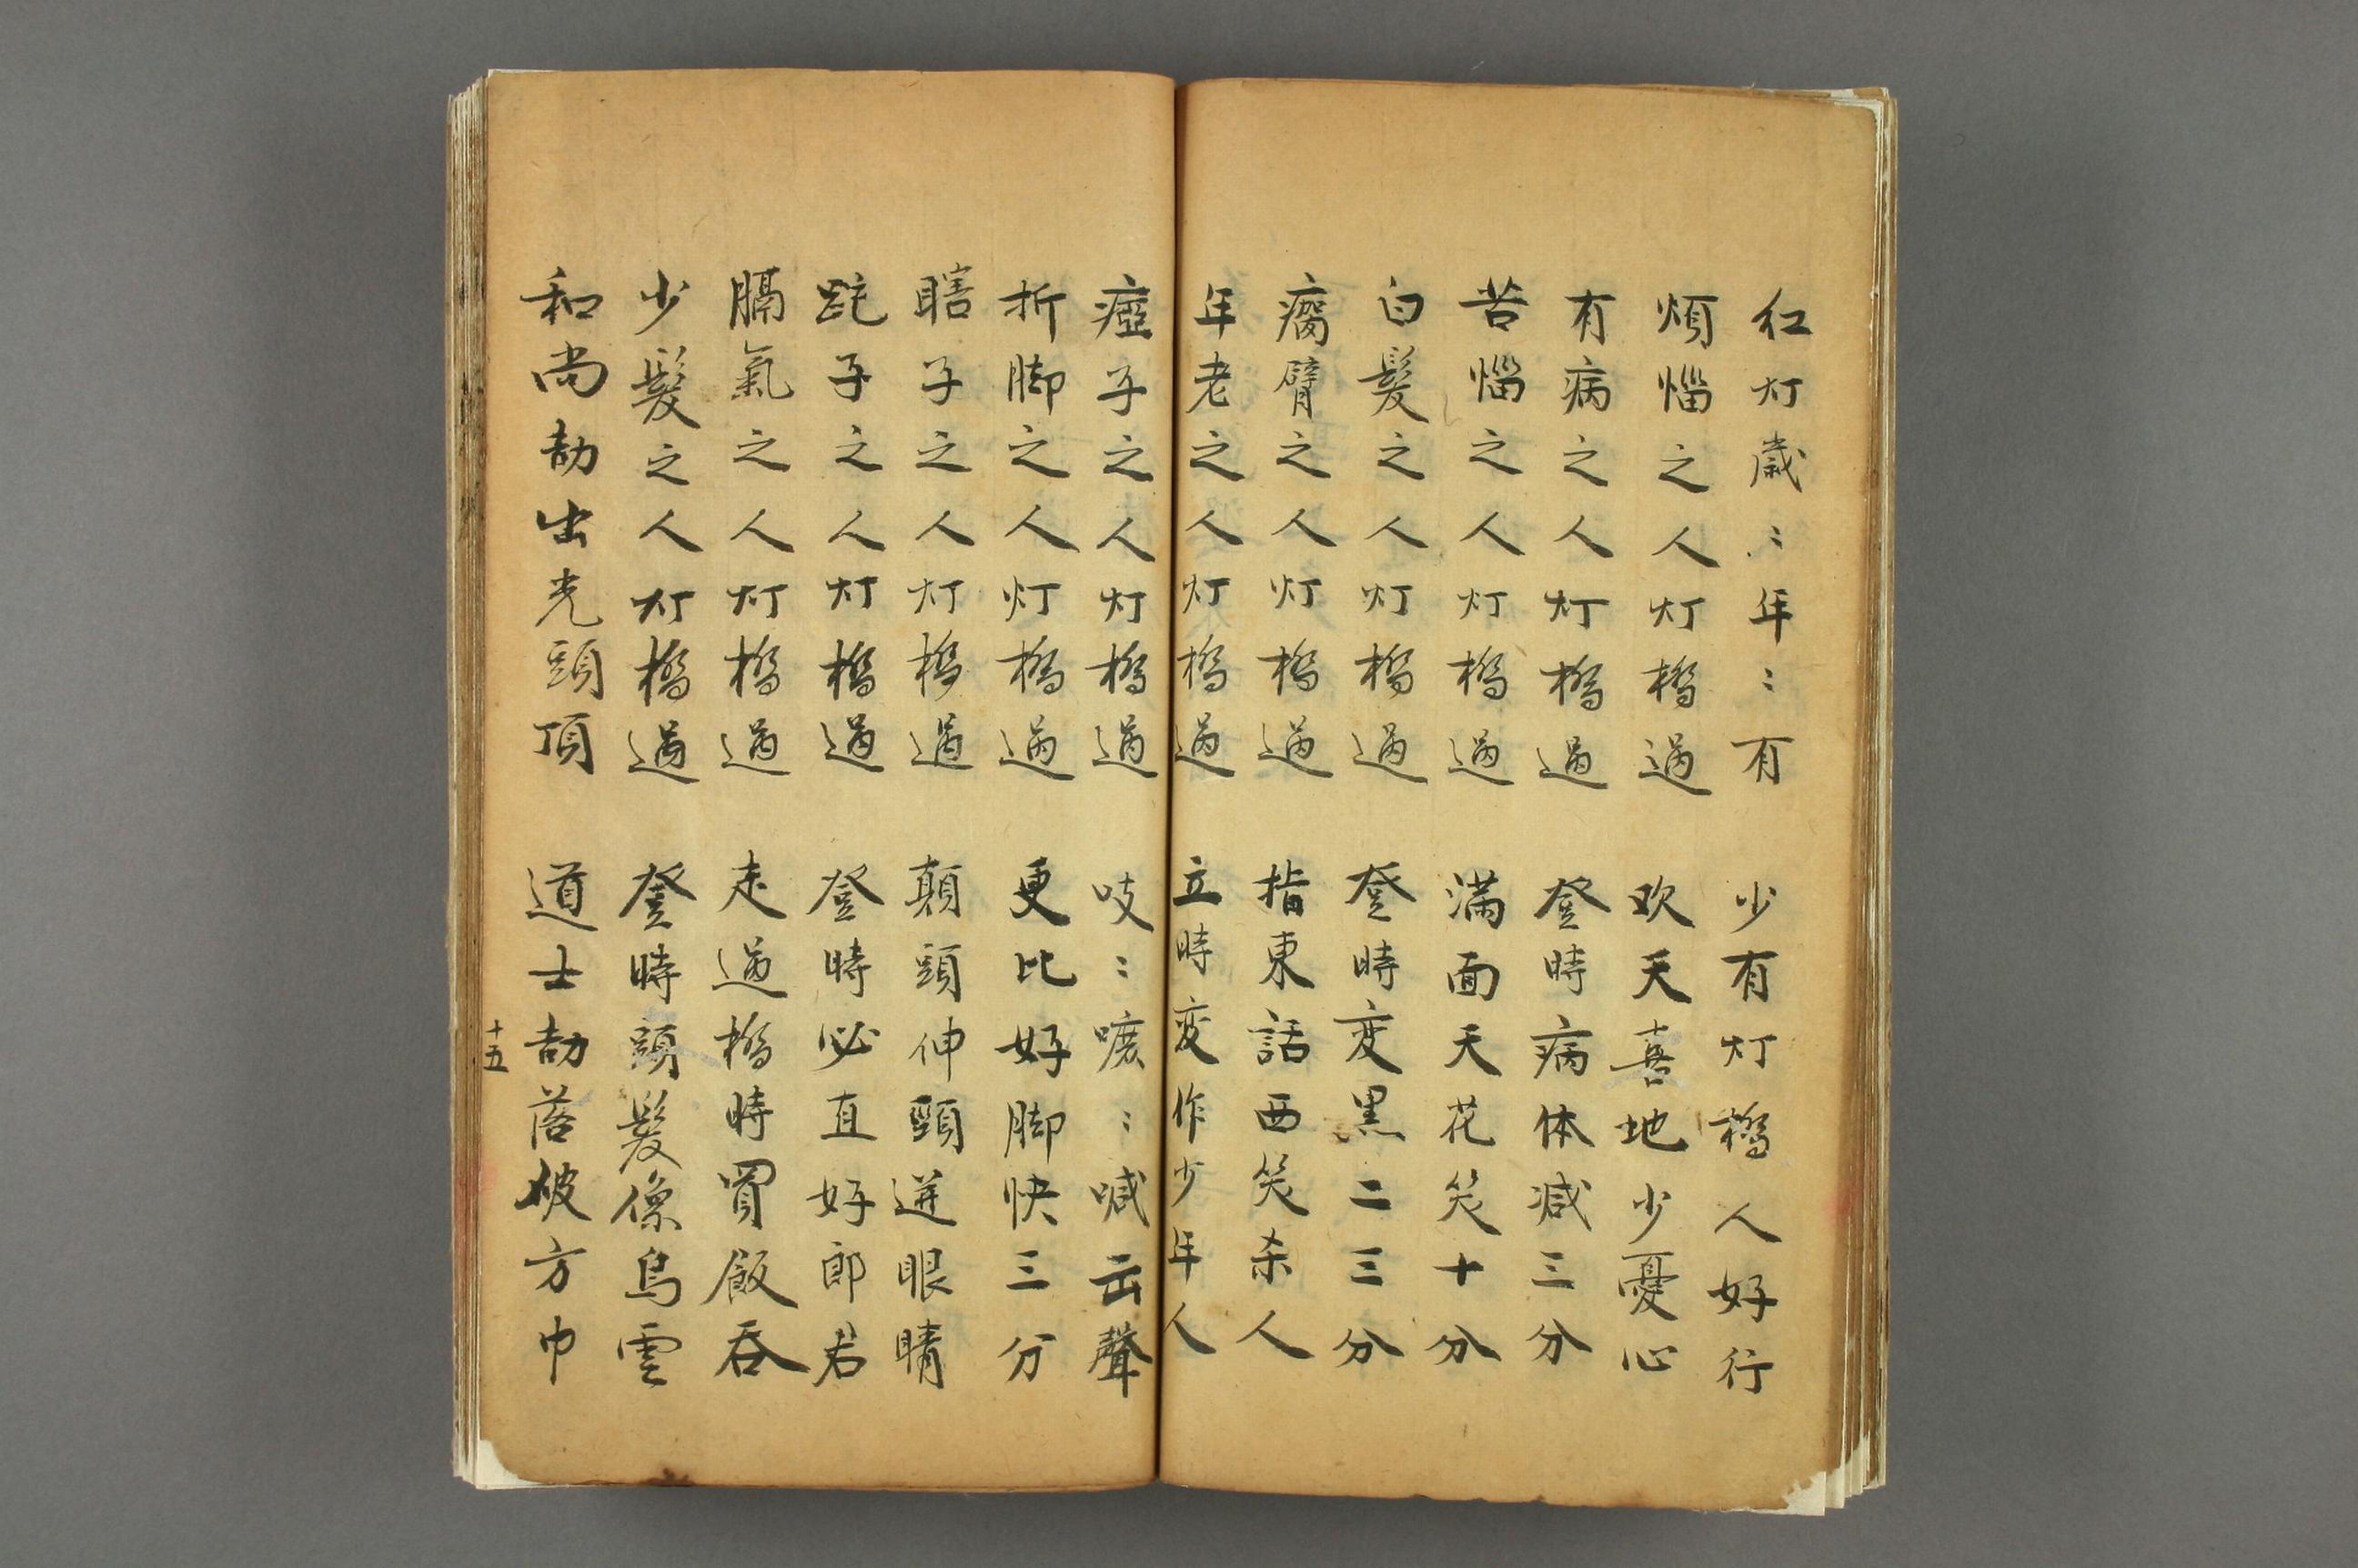 红灯歳〻年〻有　少有灯橋人好行
煩惱之人灯橋過　欢天喜地少憂心
有病之人灯橋過　登時病体减三分
苦惱之人灯橋過　满面天花笑十分
白髮之人灯橋過　登時变黑二三分
臂之人灯橋過　指東話西笑杀人
年老之人灯橋過　立時变作少年人
瘂子之人灯橋過　吱〻嚒〻喊出聲
折脚之人灯橋過　更比好脚快三分
瞎子之人灯橋過　顛頭伸頸迸眼睛
跎子之人灯橋過　登時必直好郎君
膈氣之人灯橋過　走過橋時買飯吞
少髮之人灯橋過　登時頭髮像烏雲
和尚劫出光頭頂　道士劫落破方巾
十五